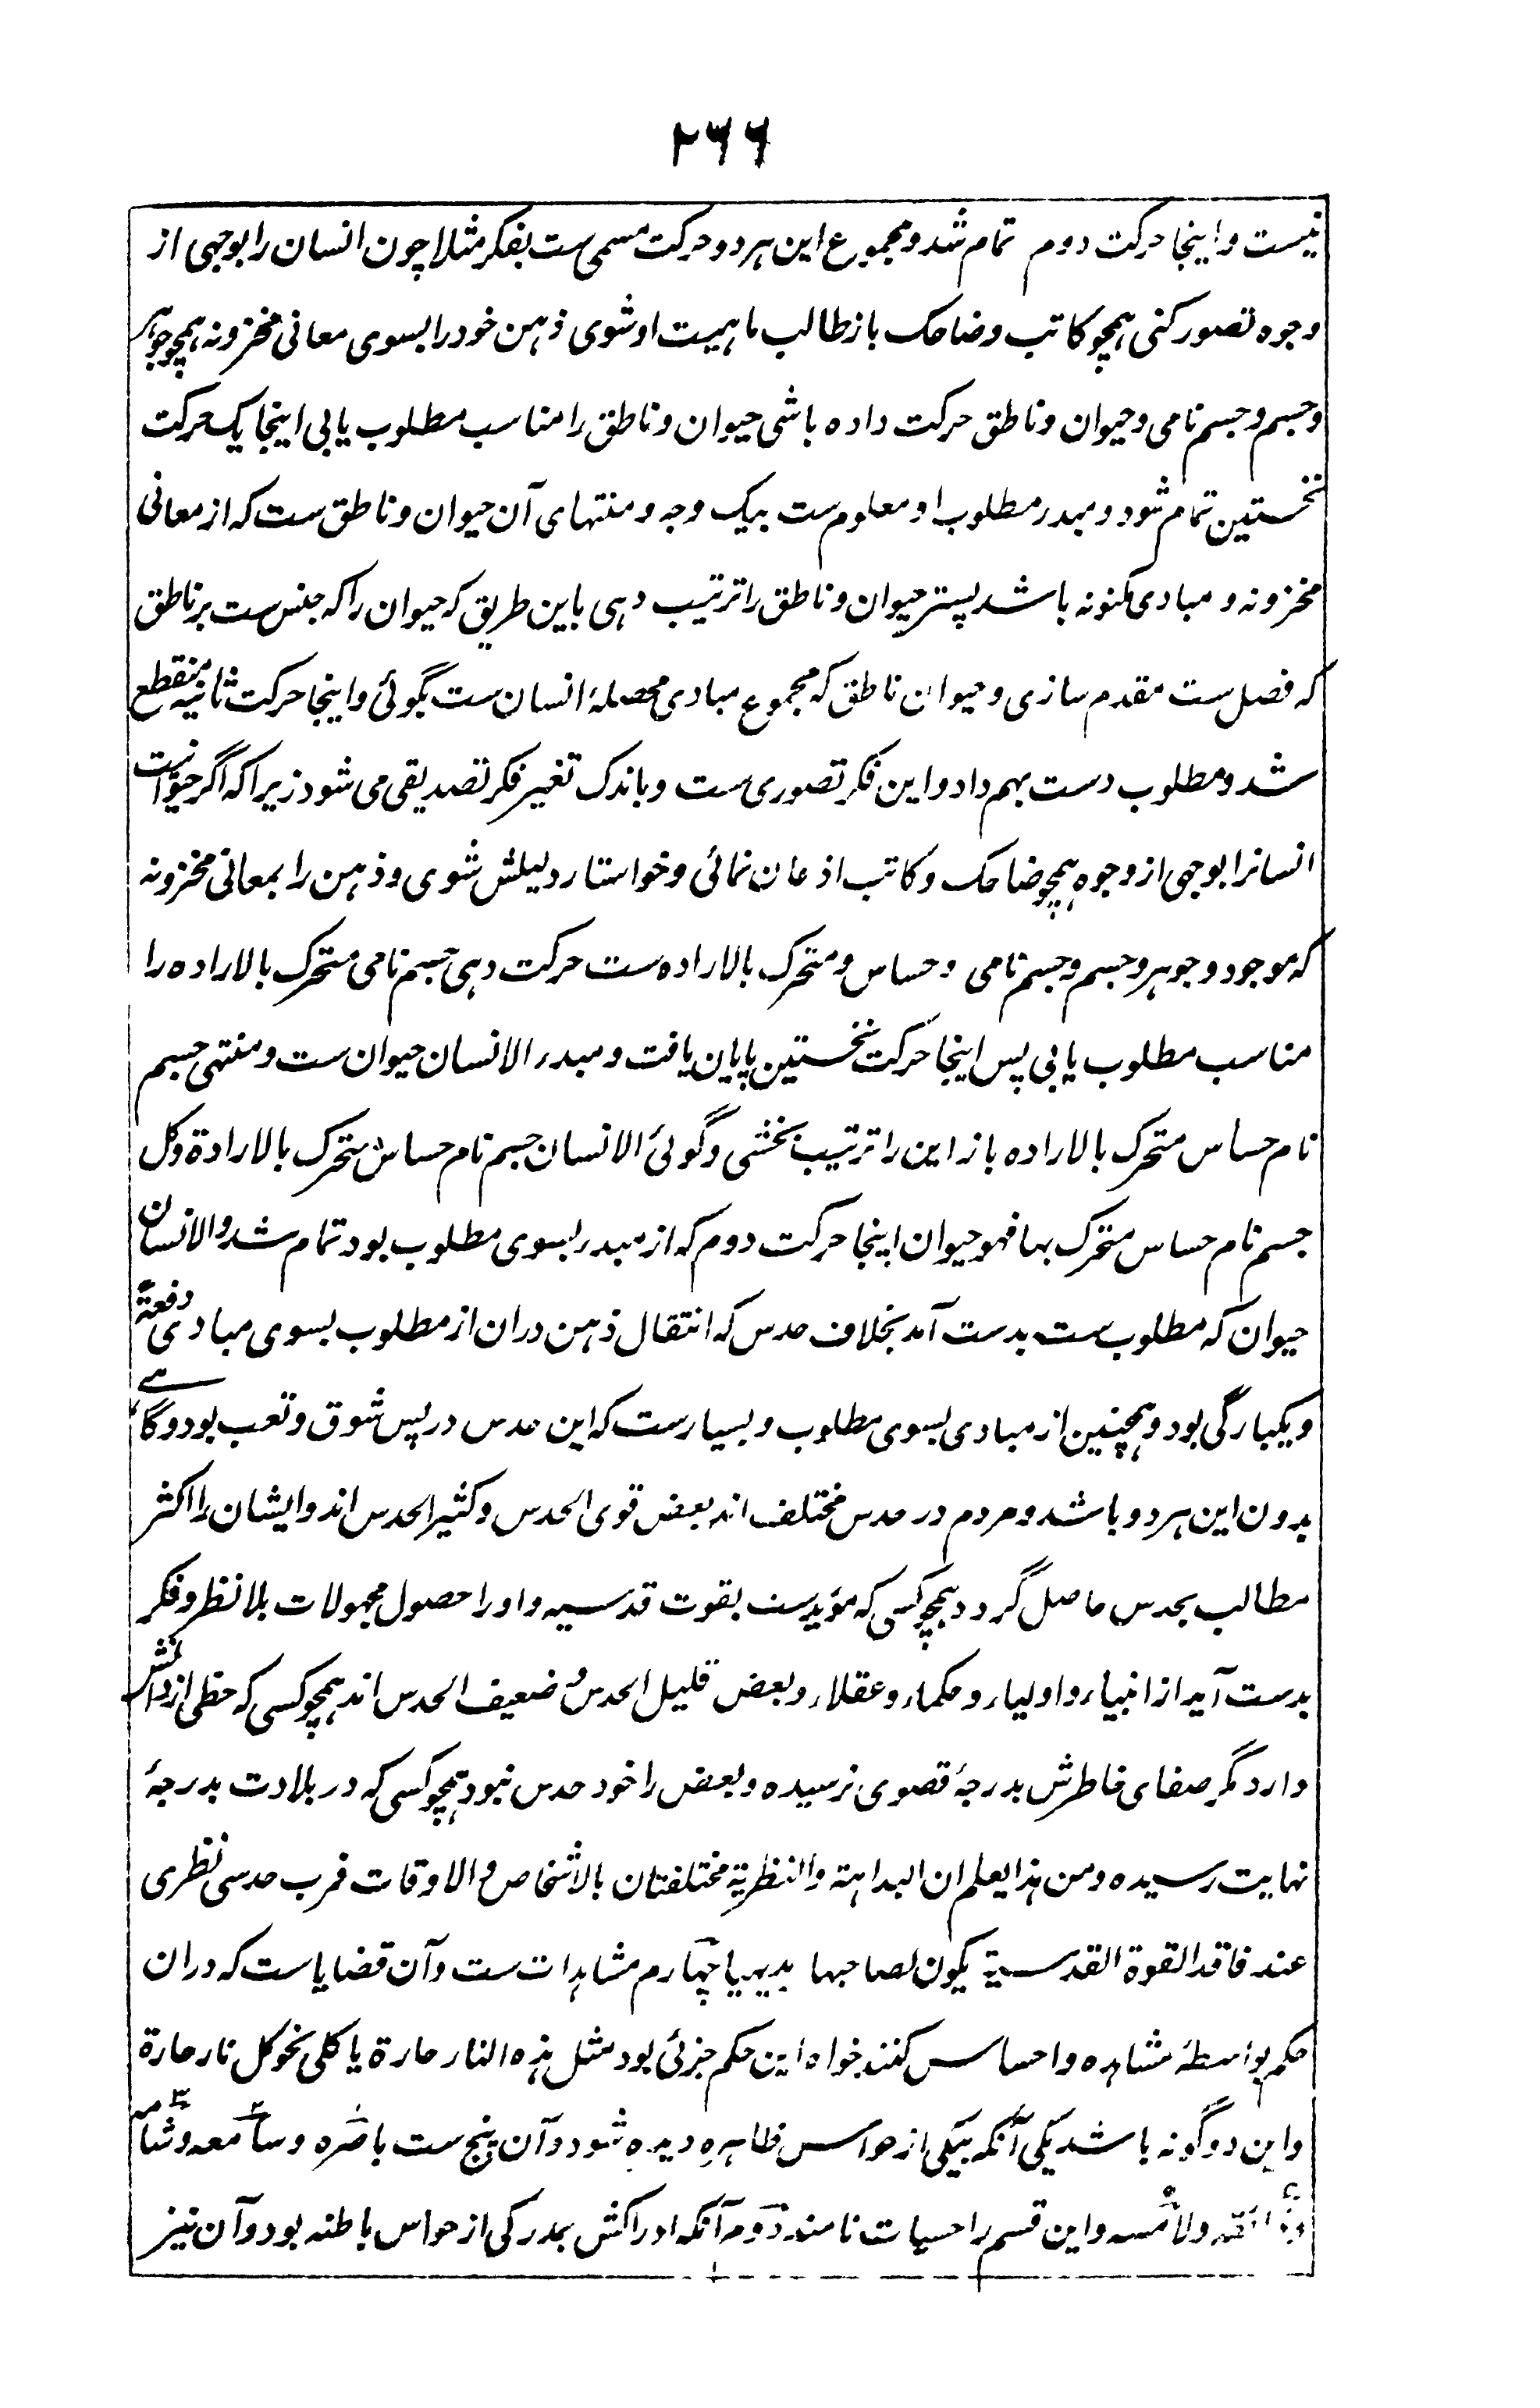 ۲۶۶
نیست و اینجا حرکت دوم تمام شد و مجموع این هر دو حرکت مسمی ست بفکر مثلا چون انسان را بوجهی از
وجوه تصور کنی همچو کاتب و ضاحک باز طالب ماهیت او شوی ذهن خود را بسوی معانی مخزونه همچو جوهر
و جسم و جسم نامی و حیوان و ناطق حرکت داده باشی حیوان و ناطق را مناسب مطلوب یابی اینجا یک حرکت
نخستین تمام شود و مبدء مطلوب او معلوم ست بیک وجه و منتهای آن حیوان و ناطق ست که از معانی
مخزونه و مبادی مکنونه باشد پستر حیوان و ناطق را ترتیب دهی باین طریق که حیوان را که جنس ست بر ناطق
که فصل ست مقدم سازی و حیوان ناطق که مجموع مبادی محصلهٔ انسان ست بگوئی و اینجا حرکت ثانیه منقطع
شد و مطلوب دست بهم داد و این فکر تصوری ست و باندک تغیر فکر تصدیقی می شود زیرا که اگر حیوانیت
انسانرا بوجهی از وجوه همچو ضاحک و کاتب اذعان نمائی و خواستار دلیلش شوی و ذهن را بمعانی مخزونه
که موجود و جوهر و جسم و جسم نامی و حساس و متحرک بالاراده ست حرکت دهی جسم نامی متحرک بالاراده را
مناسب مطلوب یابی پس اینجا حرکت نخستین پایان یافت و مبدء الانسان حیوان ست و منتهی جسم
نام حساس متحرک بالاراده باز این را ترتیب بخشی و گوئی الانسان جسم نام حساس متحرک بالارادة و کل
جسم نام حساس متحرک بها فهو حیوان اینجا حرکت دوم که از مبدء بسوی مطلوب بود تمام شد و الانسان
حیوان که مطلوب ست بدست آمد بخلاف حدس که انتقال ذهن دران از مطلوب بسوی مبادی دفعةً
و یکبارگی بود و همچنین از مبادی بسوی مطلوب و بسیارست که این حدس در پس شوق و تعب بود و گاهے
بدون این هر دو باشد و مردم در حدس مختلف اند بعض قوی الحدس و کثیر الحدس اند و ایشان را اکثر
مطالب بحدس حاصل گردد همچو کسی که مؤیدست بقوت قدسیه و او را حصول مجهولات بلا نظر و فکر
بدست آید از انبیاء و اولیاء و حکماء و عقلاء و بعض قلیل الحدس و ضعیف الحدس اند همچو کسی که حظی از دانش
دارد مگر صفای خاطرش بدرجهٔ قصوی نرسیده و بعض را خود حدس نبود همچو کسی که در بلادت بدرجهٔ
نهایت رسیده و من هذا یعلم ان البداهة والنظریة مختلفتان بالاشخاص والاوقات فرب حدسی نظری
عند فاقد القوة القدسیة یکون لصاحبها بدیهیا چهارم مشاهدات ست و آن قضایاست که دران
حکم بواسطهٔ مشاهده و احساس کنند خواه این حکم جزئی بود مثل هذه النار حارة یا کلی نحو کل نار حارة
و این دو گونه باشد یکی آنکه بیکی از حواس ظاهره دیده شود و آن پنج ست باصره و سامعه و شامه
و ذائقه و لامسه و این قسم را حسیات نامند دوم آنکه ادراکش بمدرکی از حواس باطنه بود و آن نیز